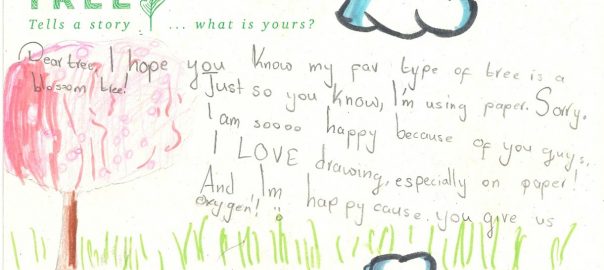 TREE
Tells a story ... what is yours?
Dear tree, I hope you know my fav type of tree is a
blossom tree! Just so you know, I'm using paper. Sorry.
I am soooo happy because of you guys,
I LOVE drawing, especially on paper!
And I'm happy cause. you give us
oxygen! :)